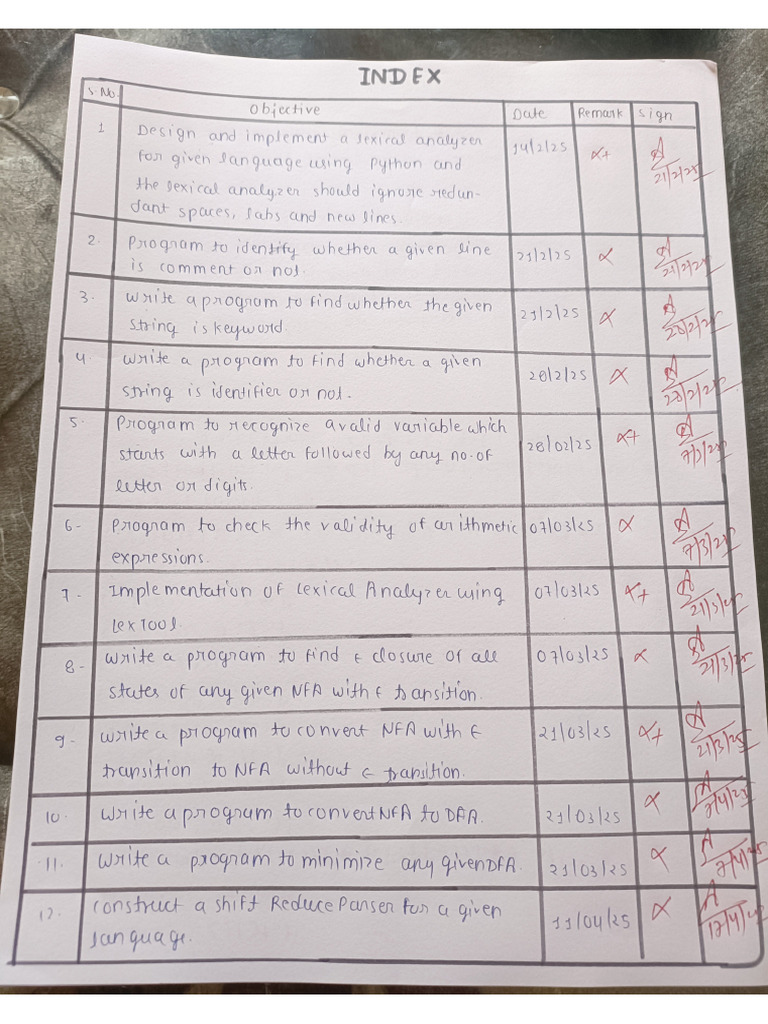 INDEX
S.No. Objective Date Remark Sign
1 Design and implement a lexical analyzer 14/2/25 α+ 21/2/25
for given language using Python and
the lexical analyzer should ignore redun-
dant spaces, tabs and new lines.
2. Program to identify whether a given line 21/2/25 α 21/2/25
is comment or not.
3. Write a program to find whether the given 21/2/25 α 28/2/25
string is keyword.
4. Write a program to find whether a given 28/2/25 α 28/2/25
string is identifier or not.
5. Program to recognize a valid variable which 28/02/25 α+ 7/3/25
starts with a letter followed by any no. of
letter or digits.
6- Program to check the validity of arithmetic 07/03/25 α 7/3/25
expressions.
7- Implementation of Lexical Analyzer using 07/03/25 α+ 21/3/25
Lex Tool.
8- Write a program to find ϵ closure of all 07/03/25 α 21/3/25
states of any given NFA with ϵ transition.
9- Write a program to convert NFA with ϵ 21/03/25 α+ 21/3/25
transition to NFA without ϵ transition.
10. Write a program to convert NFA to DFA. 21/03/25 α
11. Write a program to minimize any given DFA. 21/03/25 α
12. Construct a Shift Reduce Parser for a given 11/04/25 α
language.